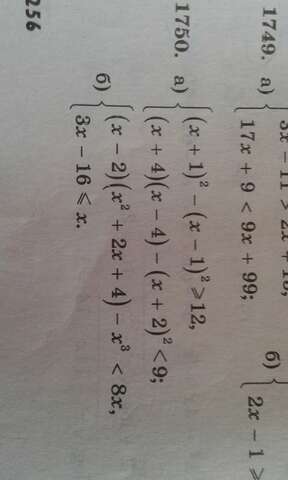 1749. а) { 3x − 11 > 2x +
17x + 9 < 9x + 99;
б) {
2x − 1 ≥
1750. а) { (x + 1)² − (x − 1)² ≥ 12,
(x + 4)(x − 4) − (x + 2)² < 9;
б) { (x − 2)(x² + 2x + 4) − x³ < 8x,
3x − 16 ≤ x.
256